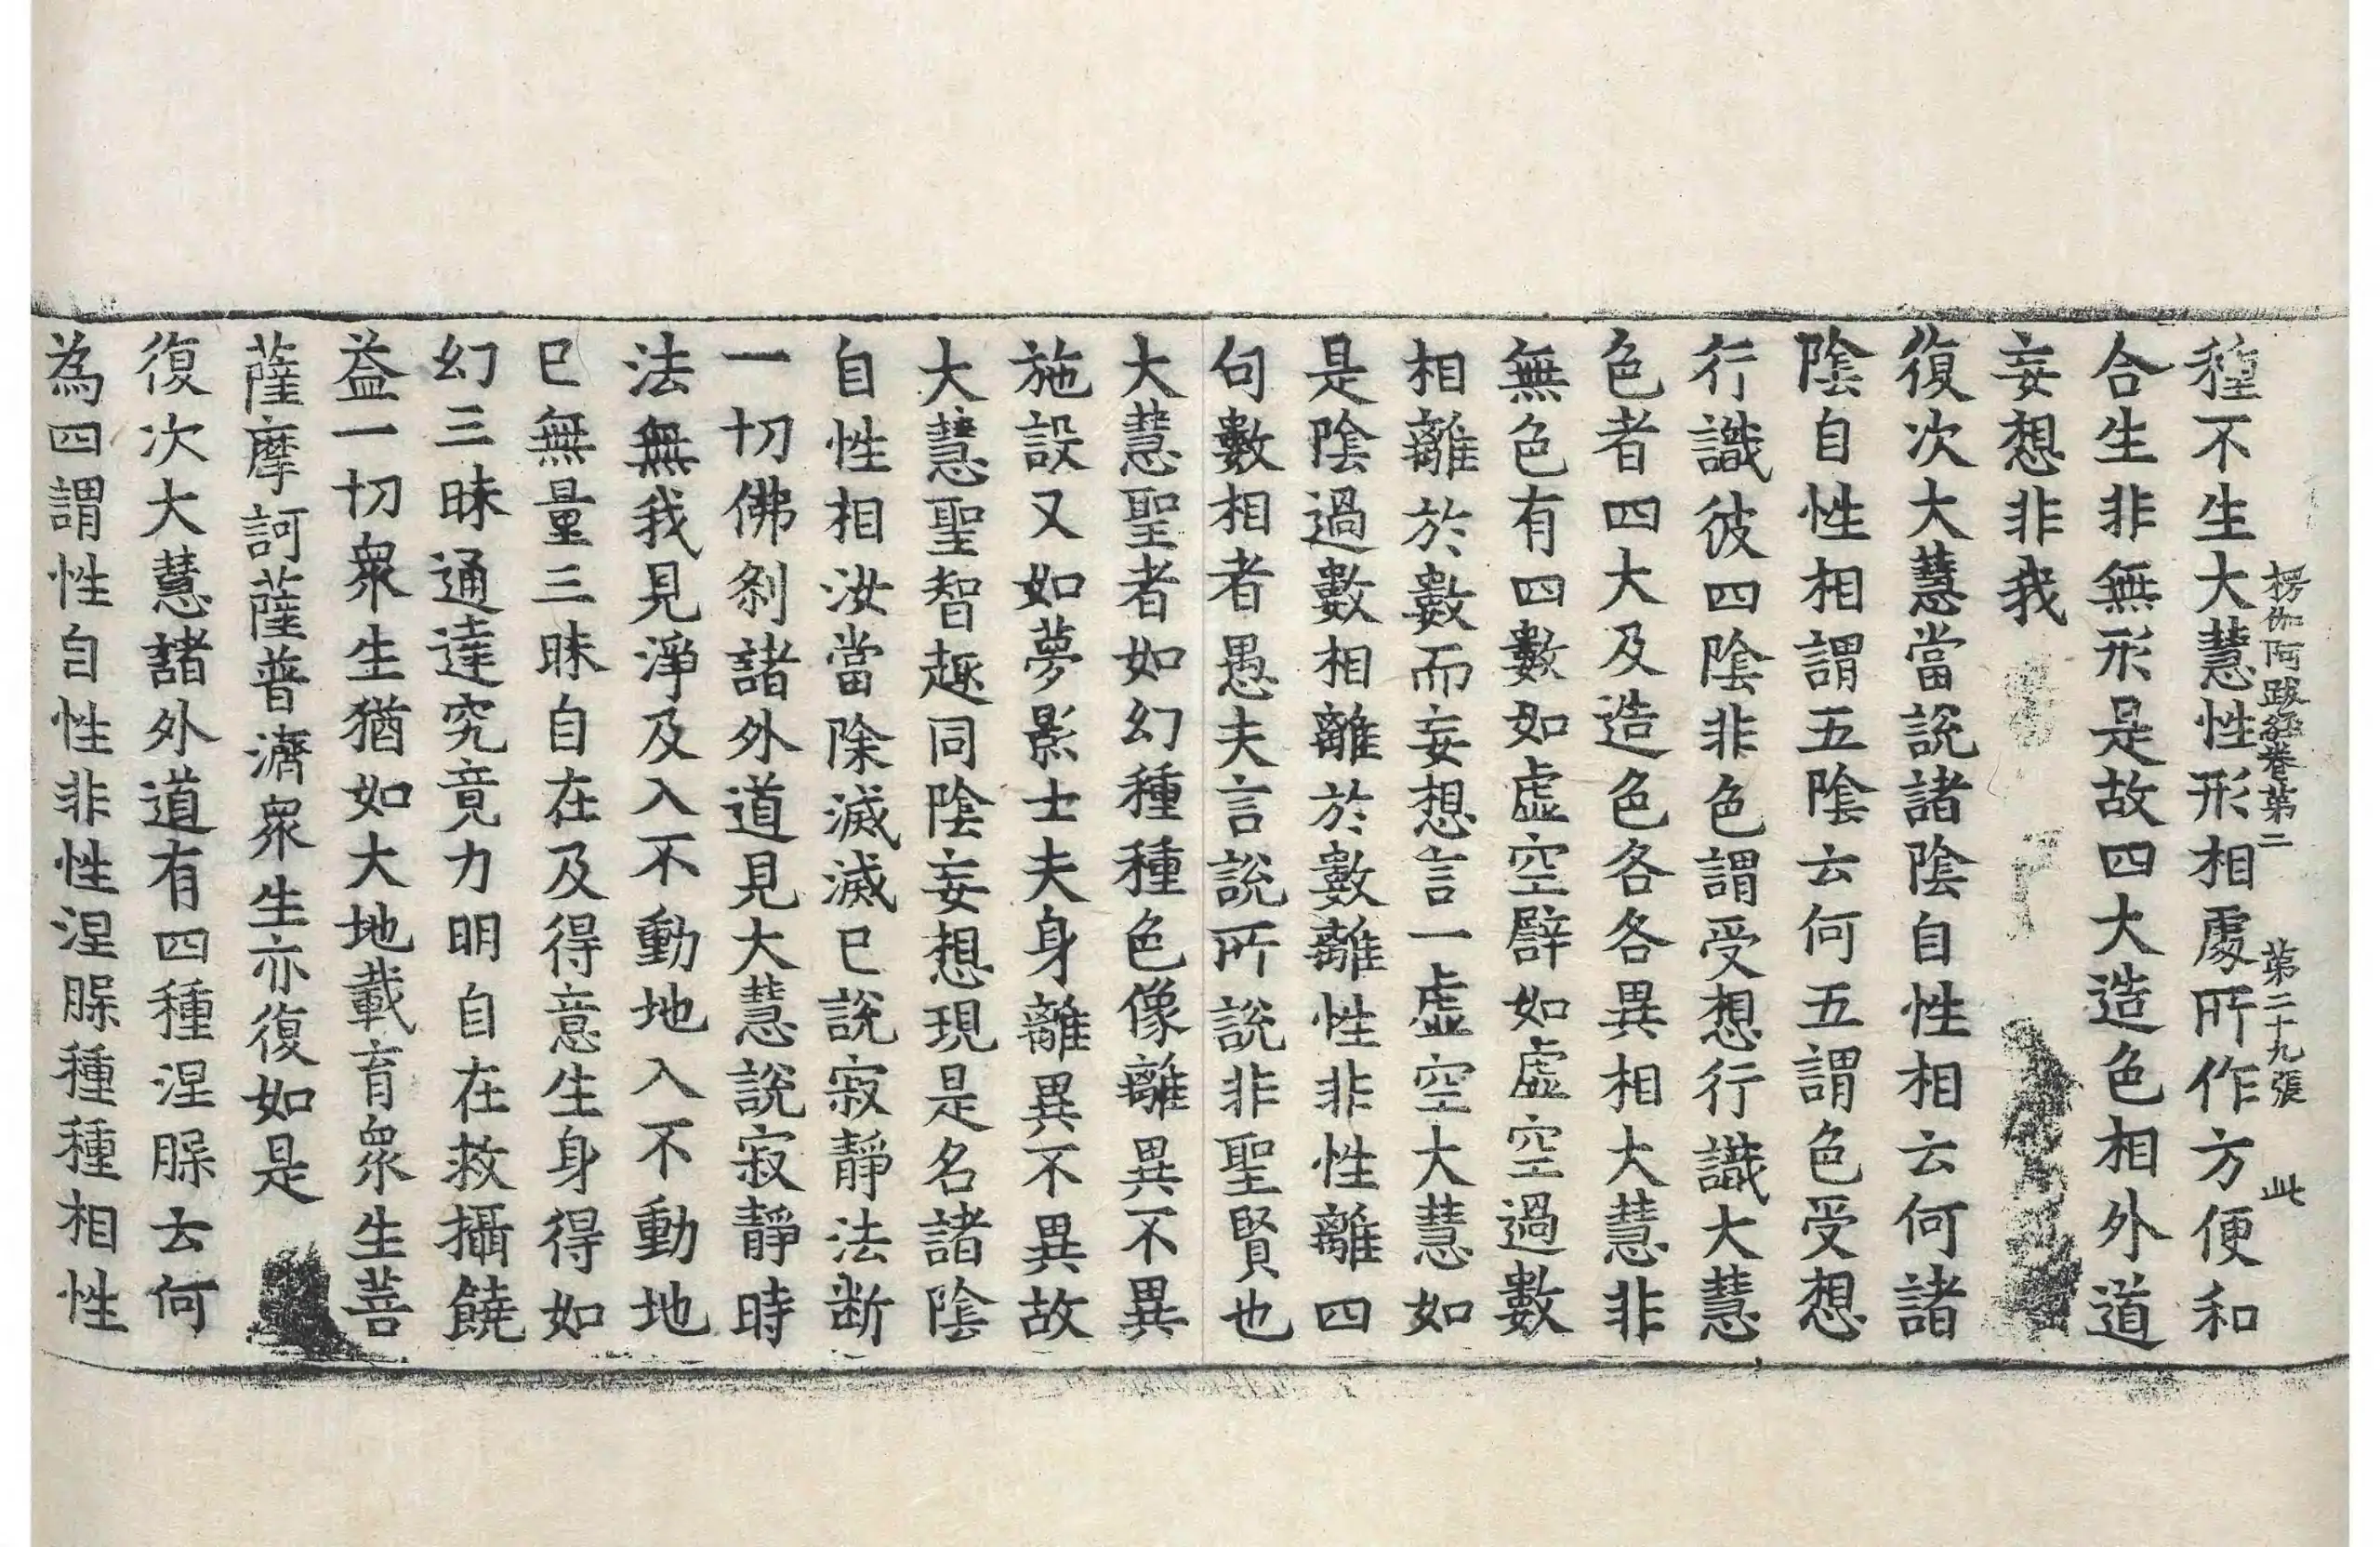 楞伽阿跋經卷第二　第二十九張　此
種不生大慧性形相處所作方便和
合生非無形是故四大造色相外道
妄想非我
復次大慧當說諸陰自性相云何諸
陰自性相謂五陰云何五謂色受想
行識彼四陰非色謂受想行識大慧
色者四大及造色各各異相大慧非
無色有四數如虛空譬如虛空過數
相離於數而妄想言一虛空大慧如
是陰過數相離於數離性非性離四
句數相者愚夫言說所說非聖賢也
大慧聖者如幻種種色像離異不異
施設又如夢影士夫身離異不異故
大慧聖智趣同陰妄想現是名諸陰
自性相汝當除滅滅已說寂靜法斷
一切佛剎諸外道見大慧說寂靜時
法無我見淨及入不動地入不動地
已無量三昧自在及得意生身得如
幻三昧通達究竟力明自在救攝饒
益一切衆生猶如大地載育衆生菩
薩摩訶薩普濟衆生亦復如是
復次大慧諸外道有四種涅槃云何
為四謂性自性非性涅槃種種相性